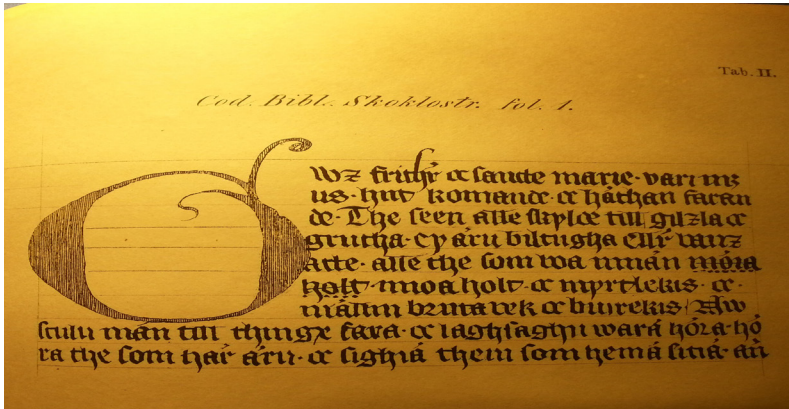 Tab. II.
Cod. Bibl. Skoklostr. fol. 1.
Guz frithr oc sancte marie. vari mz
us. hiit komande oc háthan faran
de. The seen alle skyloe till gizla oc
grutha. ey áru biltugha ellr vanz
atte. alle the som boa innán móia
holt. mioa holt oc myrtlekis. oc
mállin brimarek oc biurekis. Aw
sculu mán till thingx fara. oc laghsaghu wará hóra. hó
ra the som hár áru. oc sighiá them som hemá sitiá. án